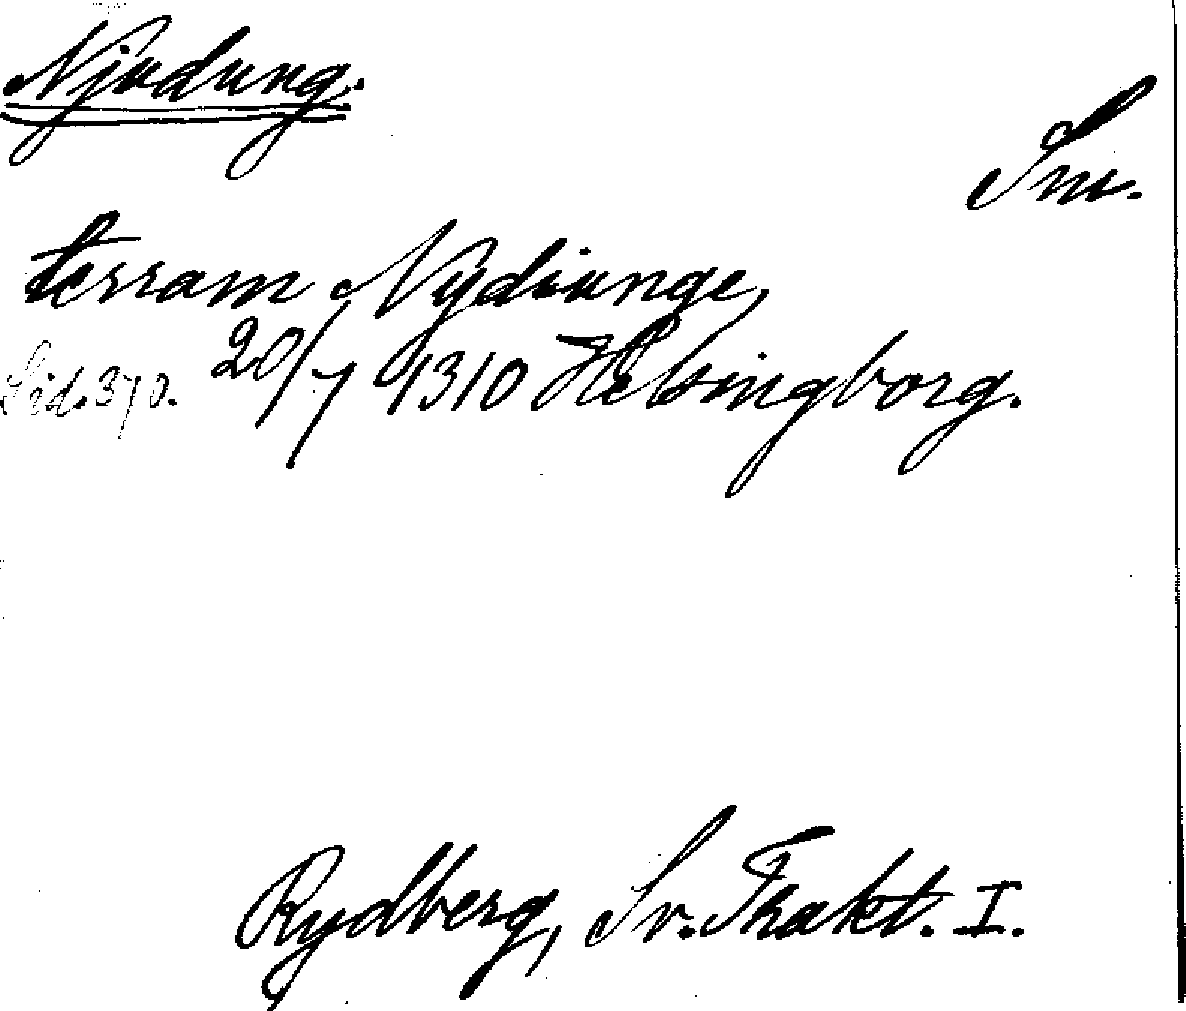 Njudung.
Sm.
terram Nydiunge,
Sid. 370. 20/7 1310 Helsingborg.
Rydberg, Sv. Trakt. I.